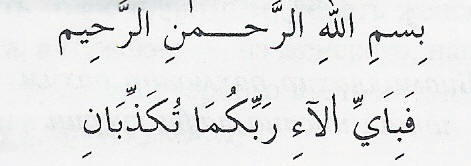 بِسْمِ اللهِ الرَّحـــمـنِ الرَّحِيمِ
فَبَايِّ الَآءِ رَبِّكُمَا تُكَذِّبَانِ